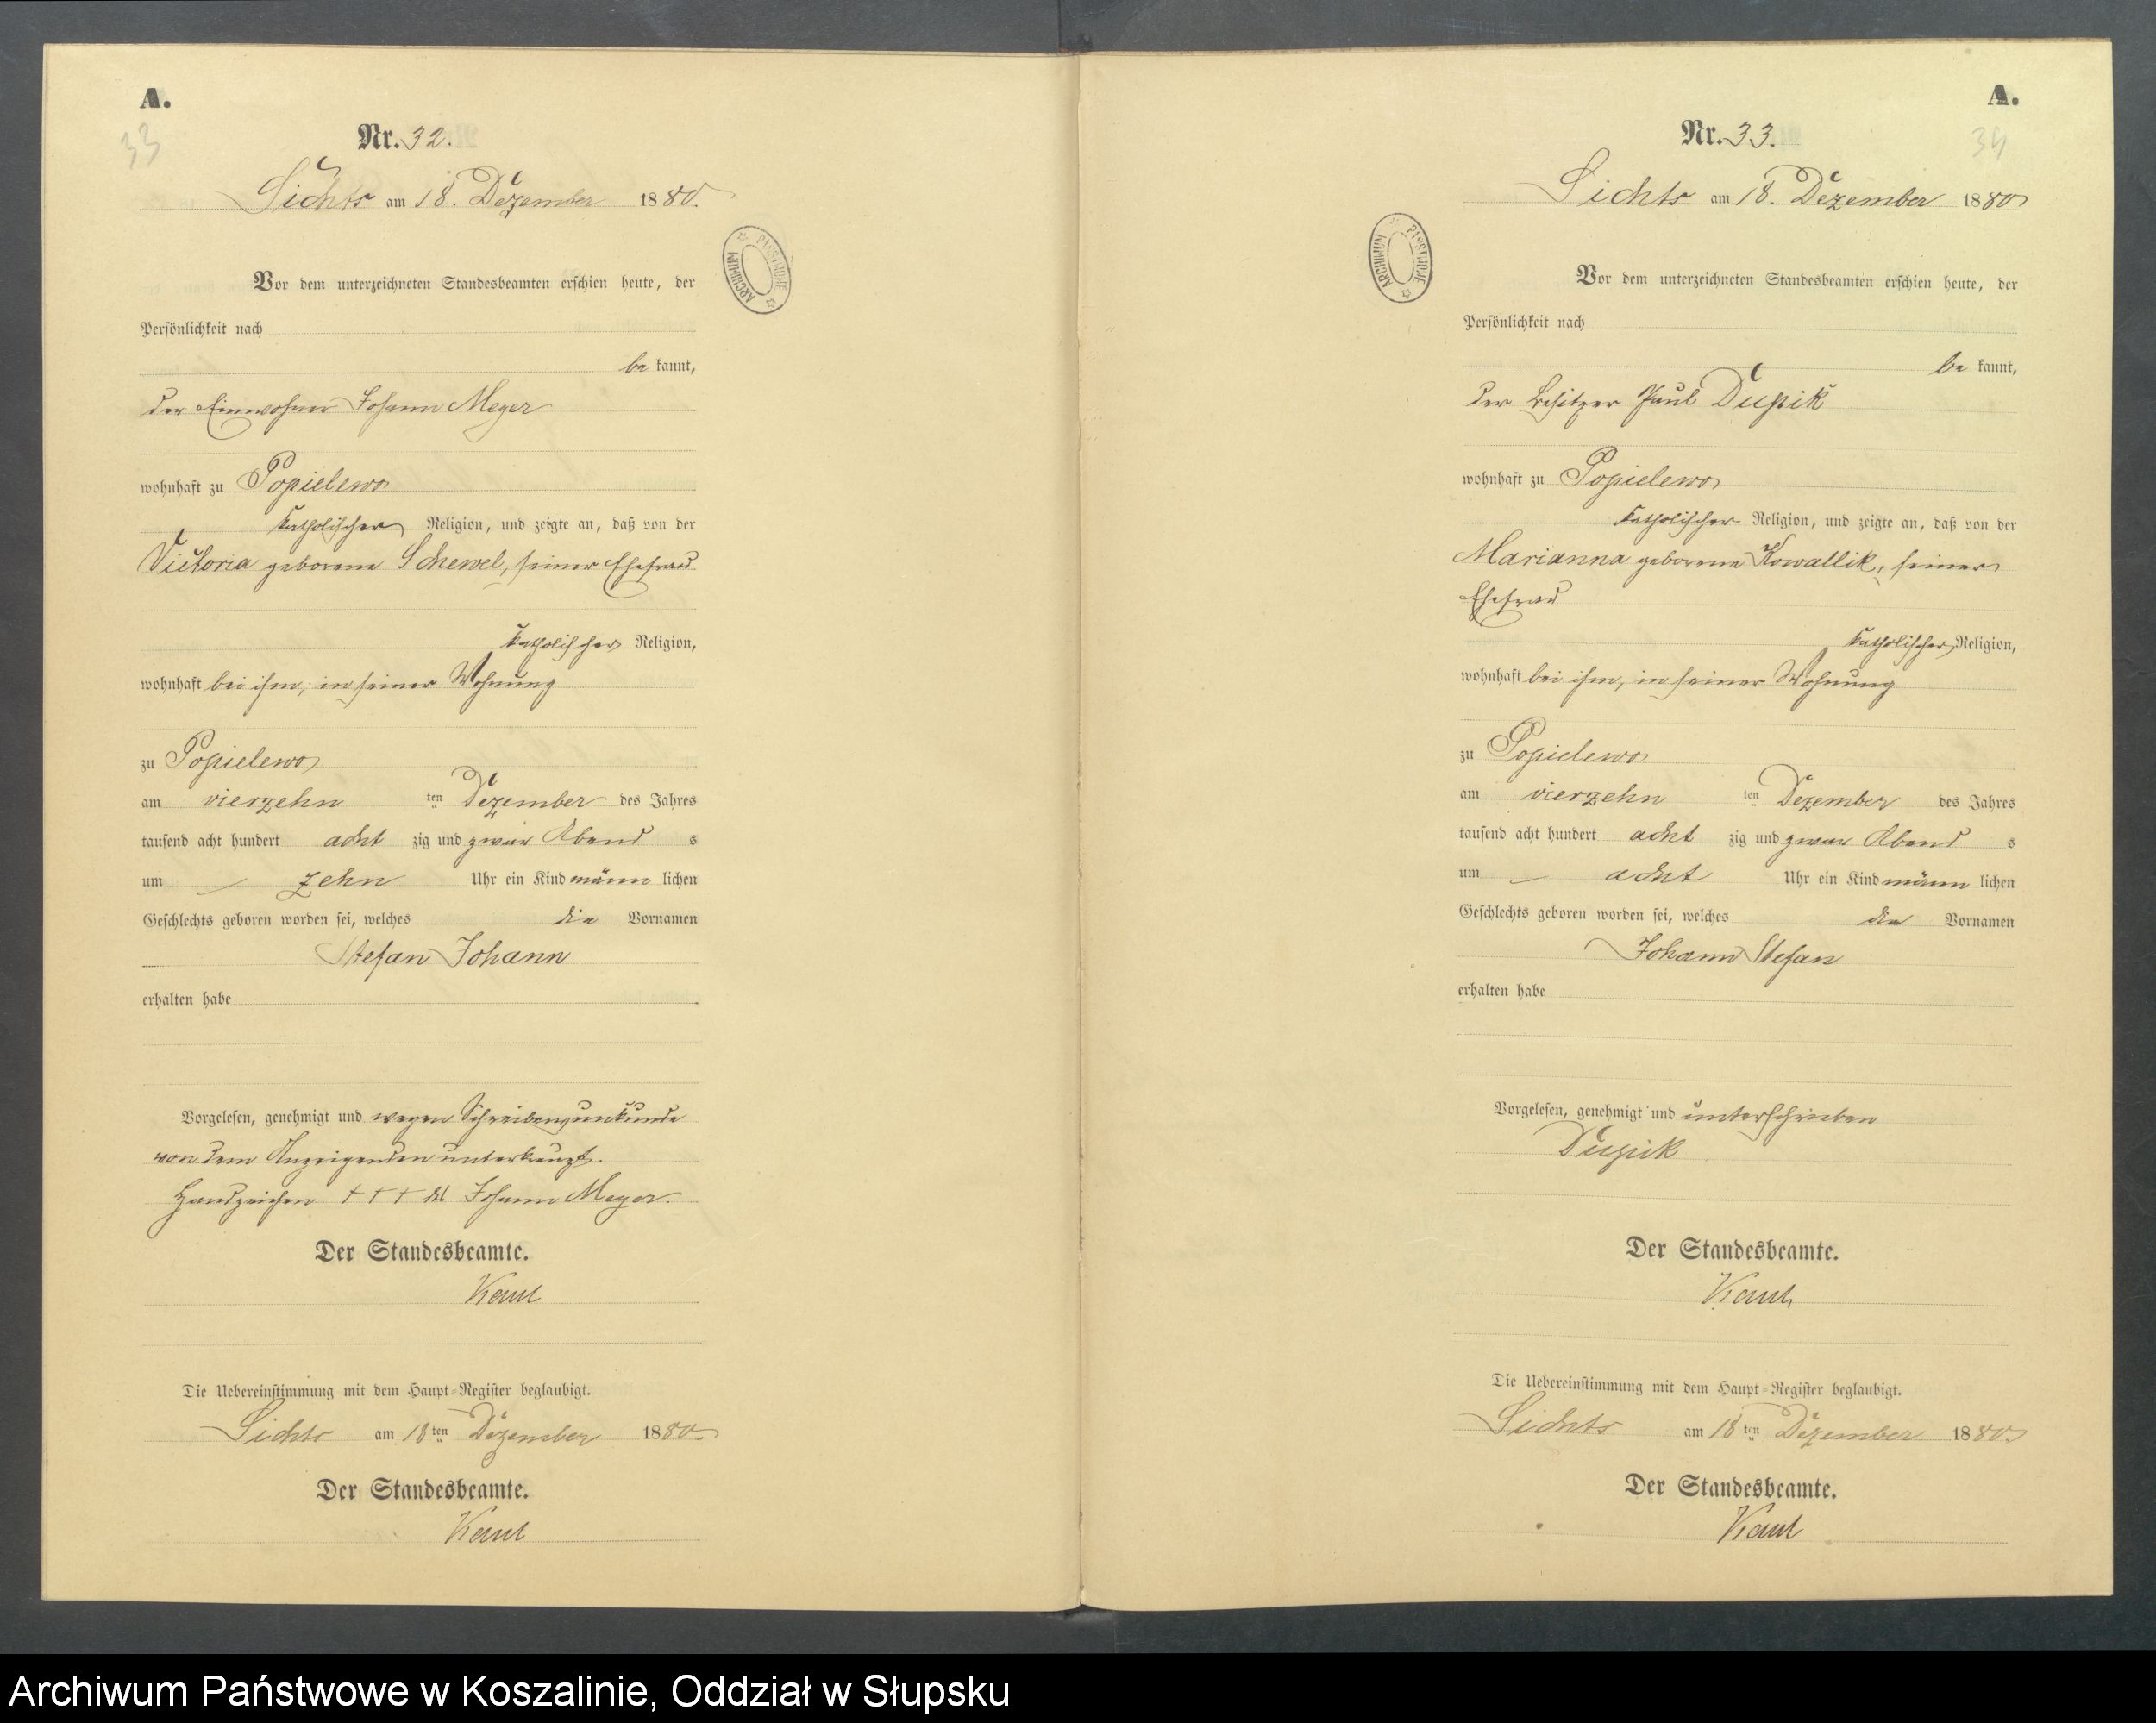 A.
33
Nr. 32.
Sichts am 18. Dezember 1880.
ARCHIWUM PAŃSTWOWE
Vor dem unterzeichneten Standesbeamten erschien heute, der
Persönlichkeit nach
be kannt,
der Einwohner Johann Meyer
wohnhaft zu Popielewo
katholischer Religion, und zeigte an, daß von der
Victoria geborene Schewel, seiner Ehefrau
katholischer Religion,
wohnhaft bei ihm, in seiner Wohnung
zu Popielewo
am vierzehn ten Dezember des Jahres
tausend acht hundert acht zig und zwar Abend s
um zehn Uhr ein Kind männ lichen
Geschlechts geboren worden sei, welches die Vornamen
Stefan Johann
erhalten habe
Vorgelesen, genehmigt und wegen Schreibensunkunde
von dem Anzeigenden unterkreuzt.
Handzeichen +++ des Johann Meyer.
Der Standesbeamte.
Kaut
Die Uebereinstimmung mit dem Haupt-Register beglaubigt.
Sichts am 18 ten Dezember 1880
Der Standesbeamte.
Kaut
A.
34
Nr. 33.
Sichts am 18. Dezember 1880
ARCHIWUM PAŃSTWOWE
Vor dem unterzeichneten Standesbeamten erschien heute, der
Persönlichkeit nach
be kannt,
der Besitzer Paul Dupik
wohnhaft zu Popielewo
katholischer Religion, und zeigte an, daß von der
Marianna geborene Kowallik, seiner
Ehefrau
katholischer Religion,
wohnhaft bei ihm, in seiner Wohnung
zu Popielewo
am vierzehn ten Dezember des Jahres
tausend acht hundert acht zig und zwar Abend s
um acht Uhr ein Kind männ lichen
Geschlechts geboren worden sei, welches die Vornamen
Johann Stefan
erhalten habe
Vorgelesen, genehmigt und unterschrieben
Dupik
Der Standesbeamte.
Kaut
Die Uebereinstimmung mit dem Haupt-Register beglaubigt.
Sichts am 18 ten Dezember 1880
Der Standesbeamte.
Kaut
Archiwum Państwowe w Koszalinie, Oddział w Słupsku